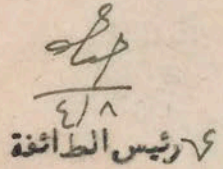 ٤/٨
ع/ رئيس الطائفة